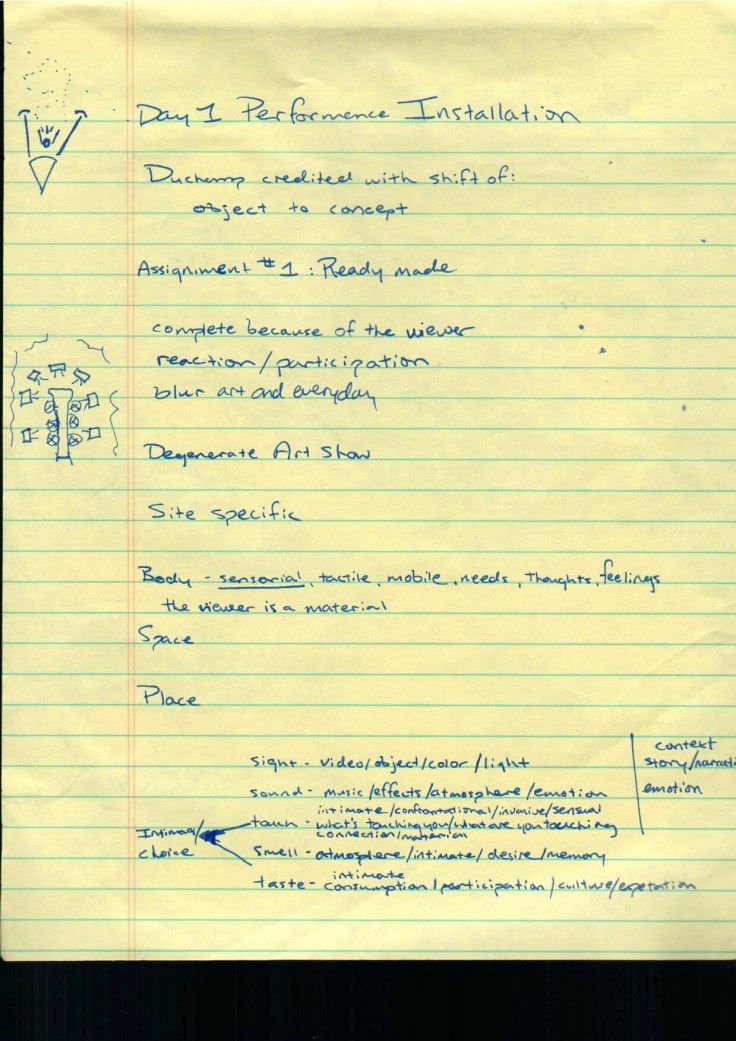 Day 1 Performence Installation
Duchamp credited with shift of:
object to concept
Assignment #1 : Ready made
complete because of the viewer
reaction/participation
blur art and everyday
Degenerate Art Show
Site specific
Body - sensorial, tactile, mobile, needs, thoughts, feelings
the viewer is a material
Space
Place
context
story/narrati
emotion
sight - video/object/color/light
sound - music/effects/atmosphere/emotion
intimate/confrontational/invasive/sensual
touch - what's touching you/what are you touching
connection/material
Intimacy/
choice
smell - atmosphere/intimate/desire/memory
intimate
taste - consumption/participation/culture/expetation